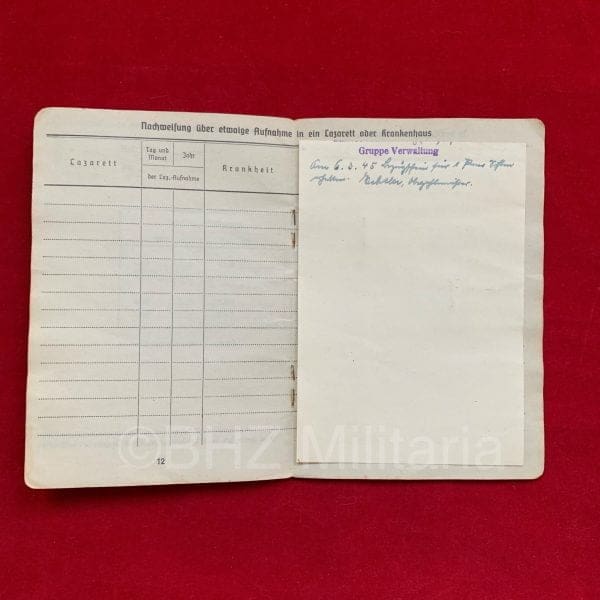 Nachweisung über etwaige Aufnahme in ein Lazarett oder Krankenhaus
Lazarett
Tag und Monat
Jahr
der Laz.-Aufnahme
Krankheit
12
Gruppe Verwaltung
Am 6. 3. 45 Bezugschein für 1 Paar
erhalten.
©BHZ Militaria